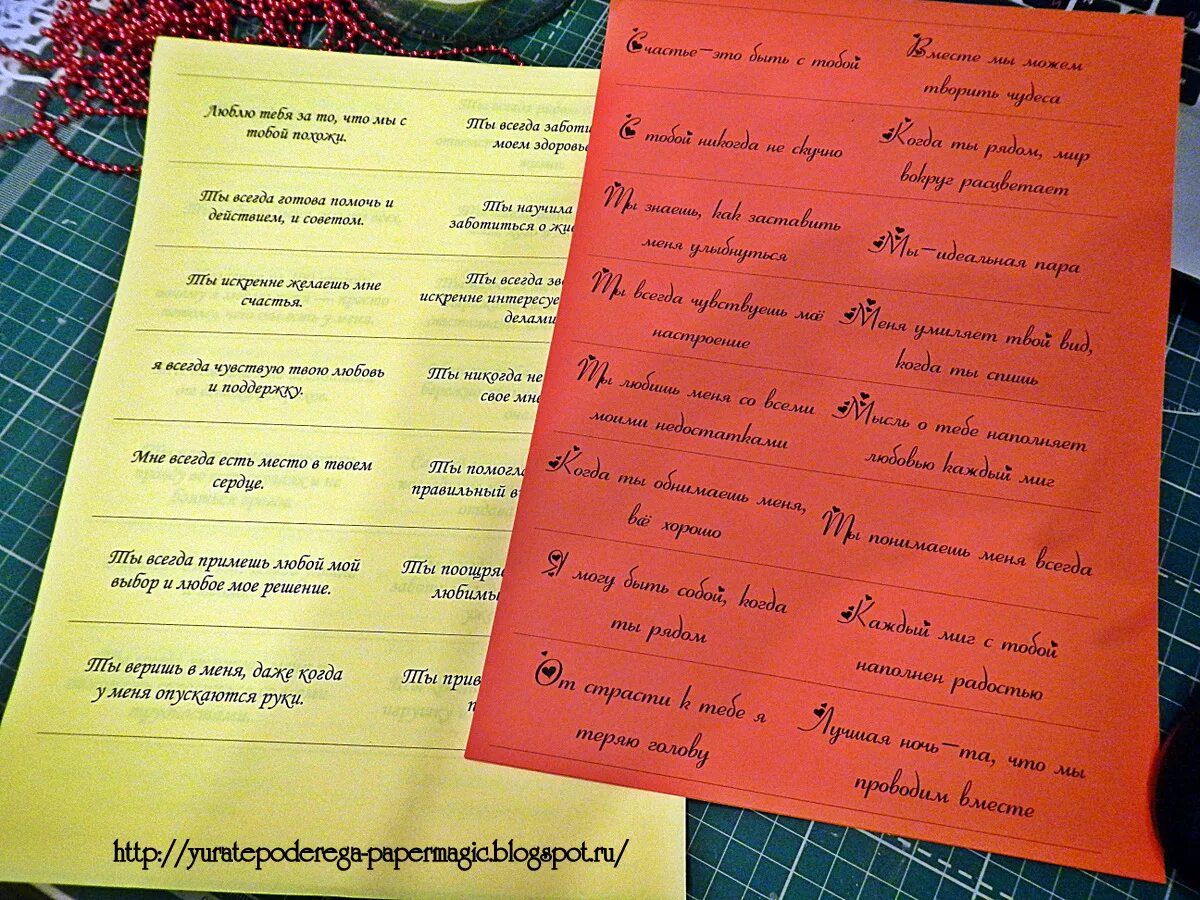 Люблю тебя за то, что мы с
тобой похожи.
Ты всегда готова помочь и
действием, и советом.
Ты искренне желаешь мне
счастья.
я всегда чувствую твою любовь
и поддержку.
Мне всегда есть место в твоем
сердце.
Ты всегда примешь любой мой
выбор и любое мое решение.
Ты веришь в меня, даже когда
у меня опускаются руки.
Ты всегда
моем
Ты научила
заботиться о
Ты всегда
искренне
делами
Ты никогда не
свое
Ты
правильный
Ты
Ты
Счастье—это быть с тобой
С тобой никогда не скучно
Ты знаешь, как заставить
меня улыбнуться
Ты всегда чувствуешь моё
настроение
Ты любишь меня со всеми
моими недостатками
Когда ты обнимаешь меня,
всё хорошо
Я могу быть собой, когда
ты рядом
От страсти к тебе я
теряю голову
Вместе мы можем
творить чудеса
Когда ты рядом, мир
вокруг расцветает
Мы—идеальная пара
Меня умиляет твой вид,
когда ты спишь
Мысль о тебе наполняет
любовью каждый миг
Ты понимаешь меня всегда
Каждый миг с тобой
наполнен радостью
Лучшая ночь—та, что мы
проводим вместе
http://yuratepoderega-papermagic.blogspot.ru/